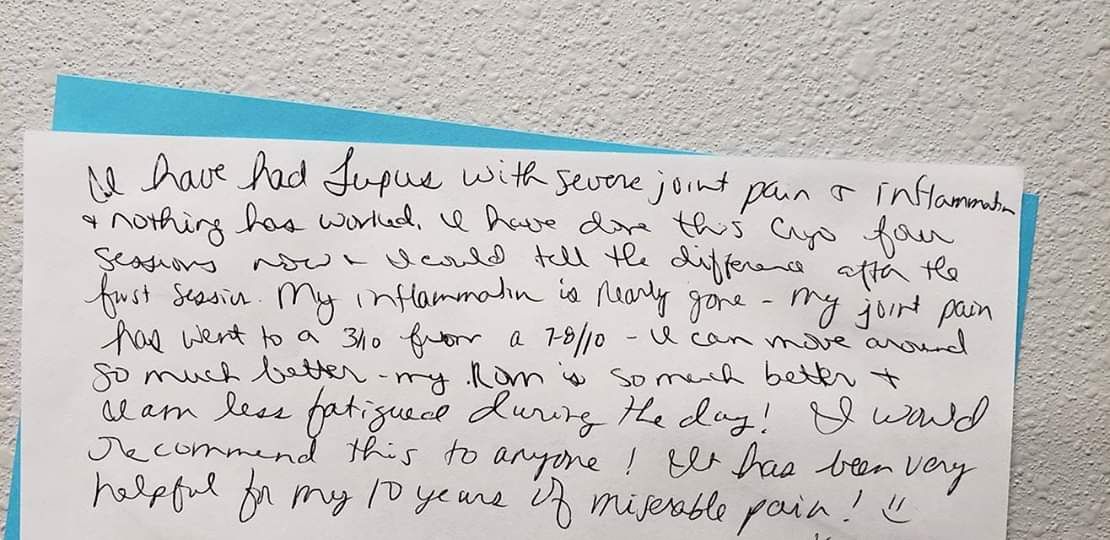 I have had Lupus with severe joint pain & inflammation
+ nothing has worked. I have done this Cryo four
sessions now + I could tell the difference after the
first session. My inflammation is nearly gone - my joint pain
has went to a 3/10 from a 7-8/10 - I can move around
so much better - my ROM is so much better +
I am less fatigued during the day! I would
recommend this to anyone! It has been very
helpful for my 10 years of miserable pain! :)